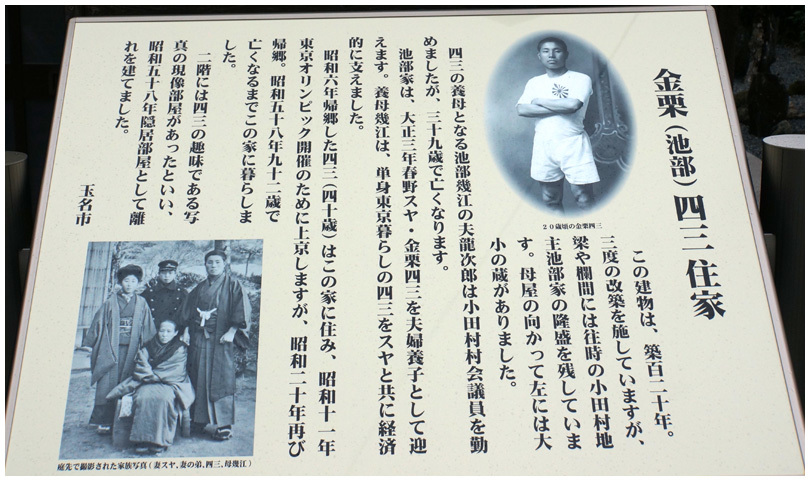 金栗（池部）四三 住家
この建物は、築百二十年。
三度の改築を施していますが、
梁や欄間には往時の小田村地
主池部家の隆盛を残していま
す。母屋の向かって左には大
小の蔵がありました。
20歳頃の金栗四三
四三の養母となる池部幾江の夫龍次郎は小田村村会議員を勤
めましたが、三十九歳で亡くなります。
池部家は、大正三年春野スヤ・金栗四三を夫婦養子として迎
えます。養母幾江は、単身東京暮らしの四三をスヤと共に経済
的に支えました。
昭和六年帰郷した四三（四十歳）はこの家に住み、昭和十一年
東京オリンピック開催のために上京しますが、昭和二十年再び
帰郷。昭和五十八年九十二歳で
亡くなるまでこの家に暮らしま
した。
二階には四三の趣味である写
真の現像部屋があったといい、
昭和五十八年隠居部屋として離
れを建てました。
玉名市
庭先で撮影された家族写真（妻スヤ、妻の弟、四三、母幾江）